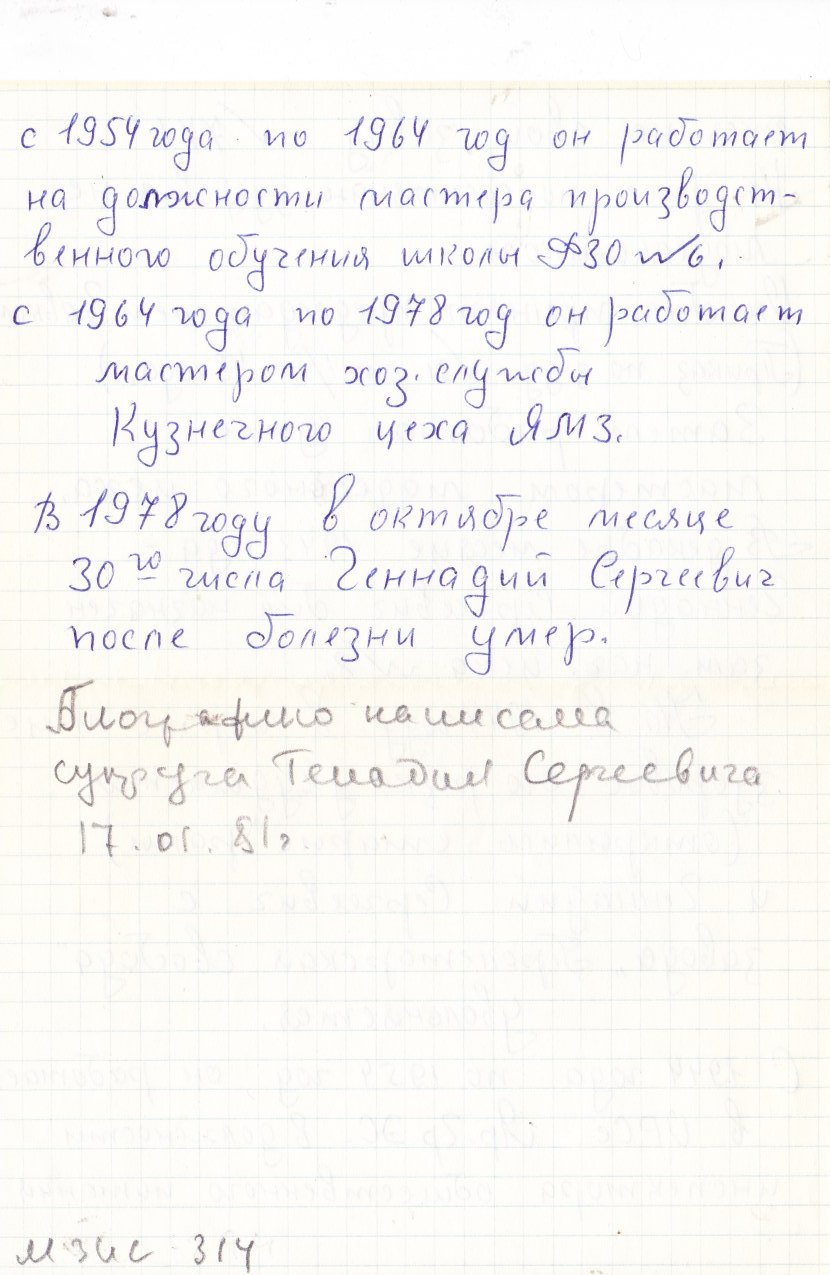 с 1954 года по 1964 год он работает
на должности мастера производст-
венного обучения школы ФЗО № 6.
с 1964 года по 1978 год он работает
мастером хоз. службы
Кузнечного цеха ЯМЗ.
В 1978 году в октябре месяце
30го числа Геннадий Сергеевич
после болезни умер.
Биографию написала
супруга Генадия Сергеевича
17.01.81г
МЗИС 314